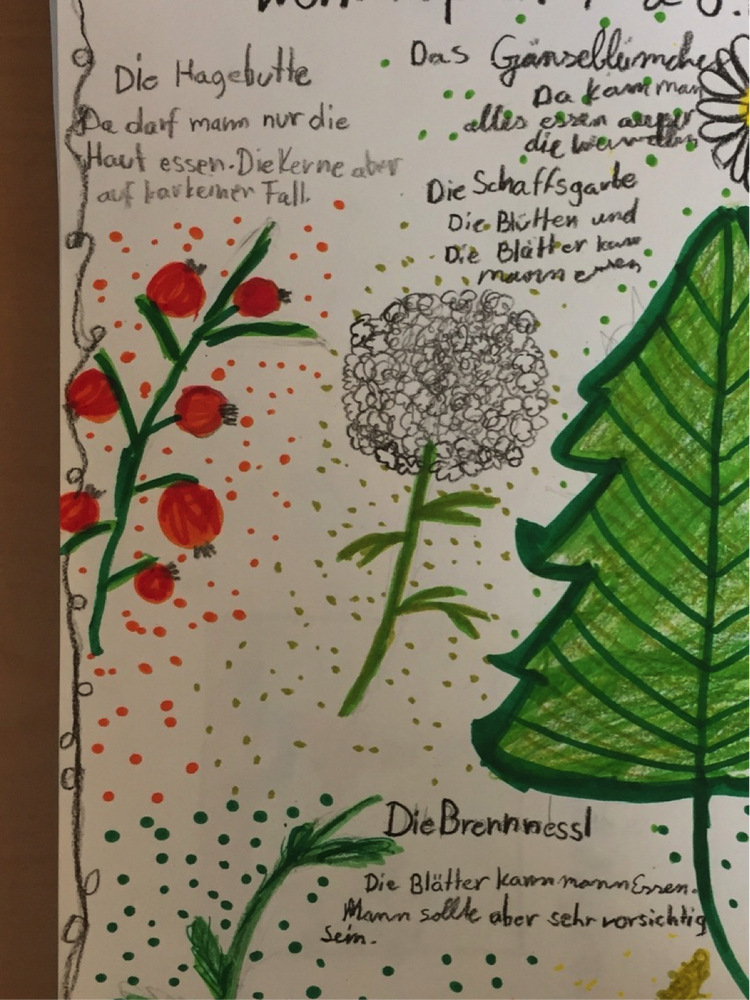 Die Hagebutte
Da darf mann nur die
Haut essen. Die Kerne aber
auf Fall.
Das Gänseblümchen
Da kann man
alles essen außer
die
Die Schaffsgarbe
Die Blütten und
Die Blätter kann
mann essen
Die Brennnessl
Die Blätter kann mann Essen.
Mann sollte aber sehr vorsichtig
Sein.